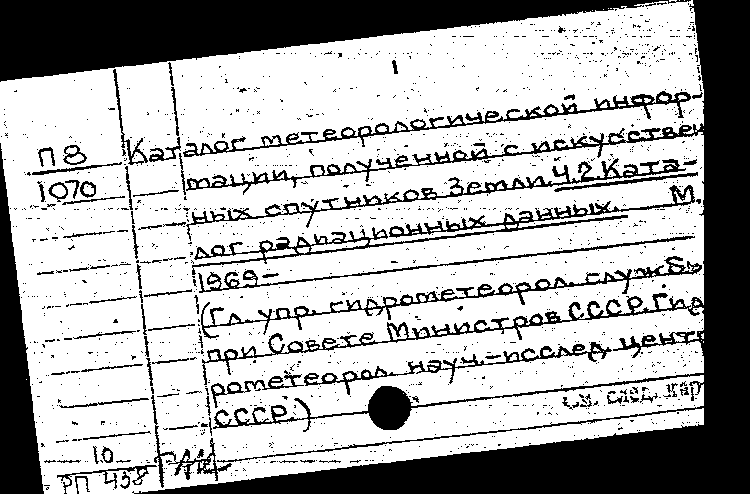 1
П 8
1070
Каталог метеорологической инфор-
мации, полученной с искусствен
ных спутников Земли. Ч.2 Ката-
лог радиационных данных. М.
1969-
(Гл. упр. гидрометеорол. службы
при Совете Министров СССР. Гид
рометеорол. науч.-исслед. центр
СССР.)
см. след. кар
10
РП 458